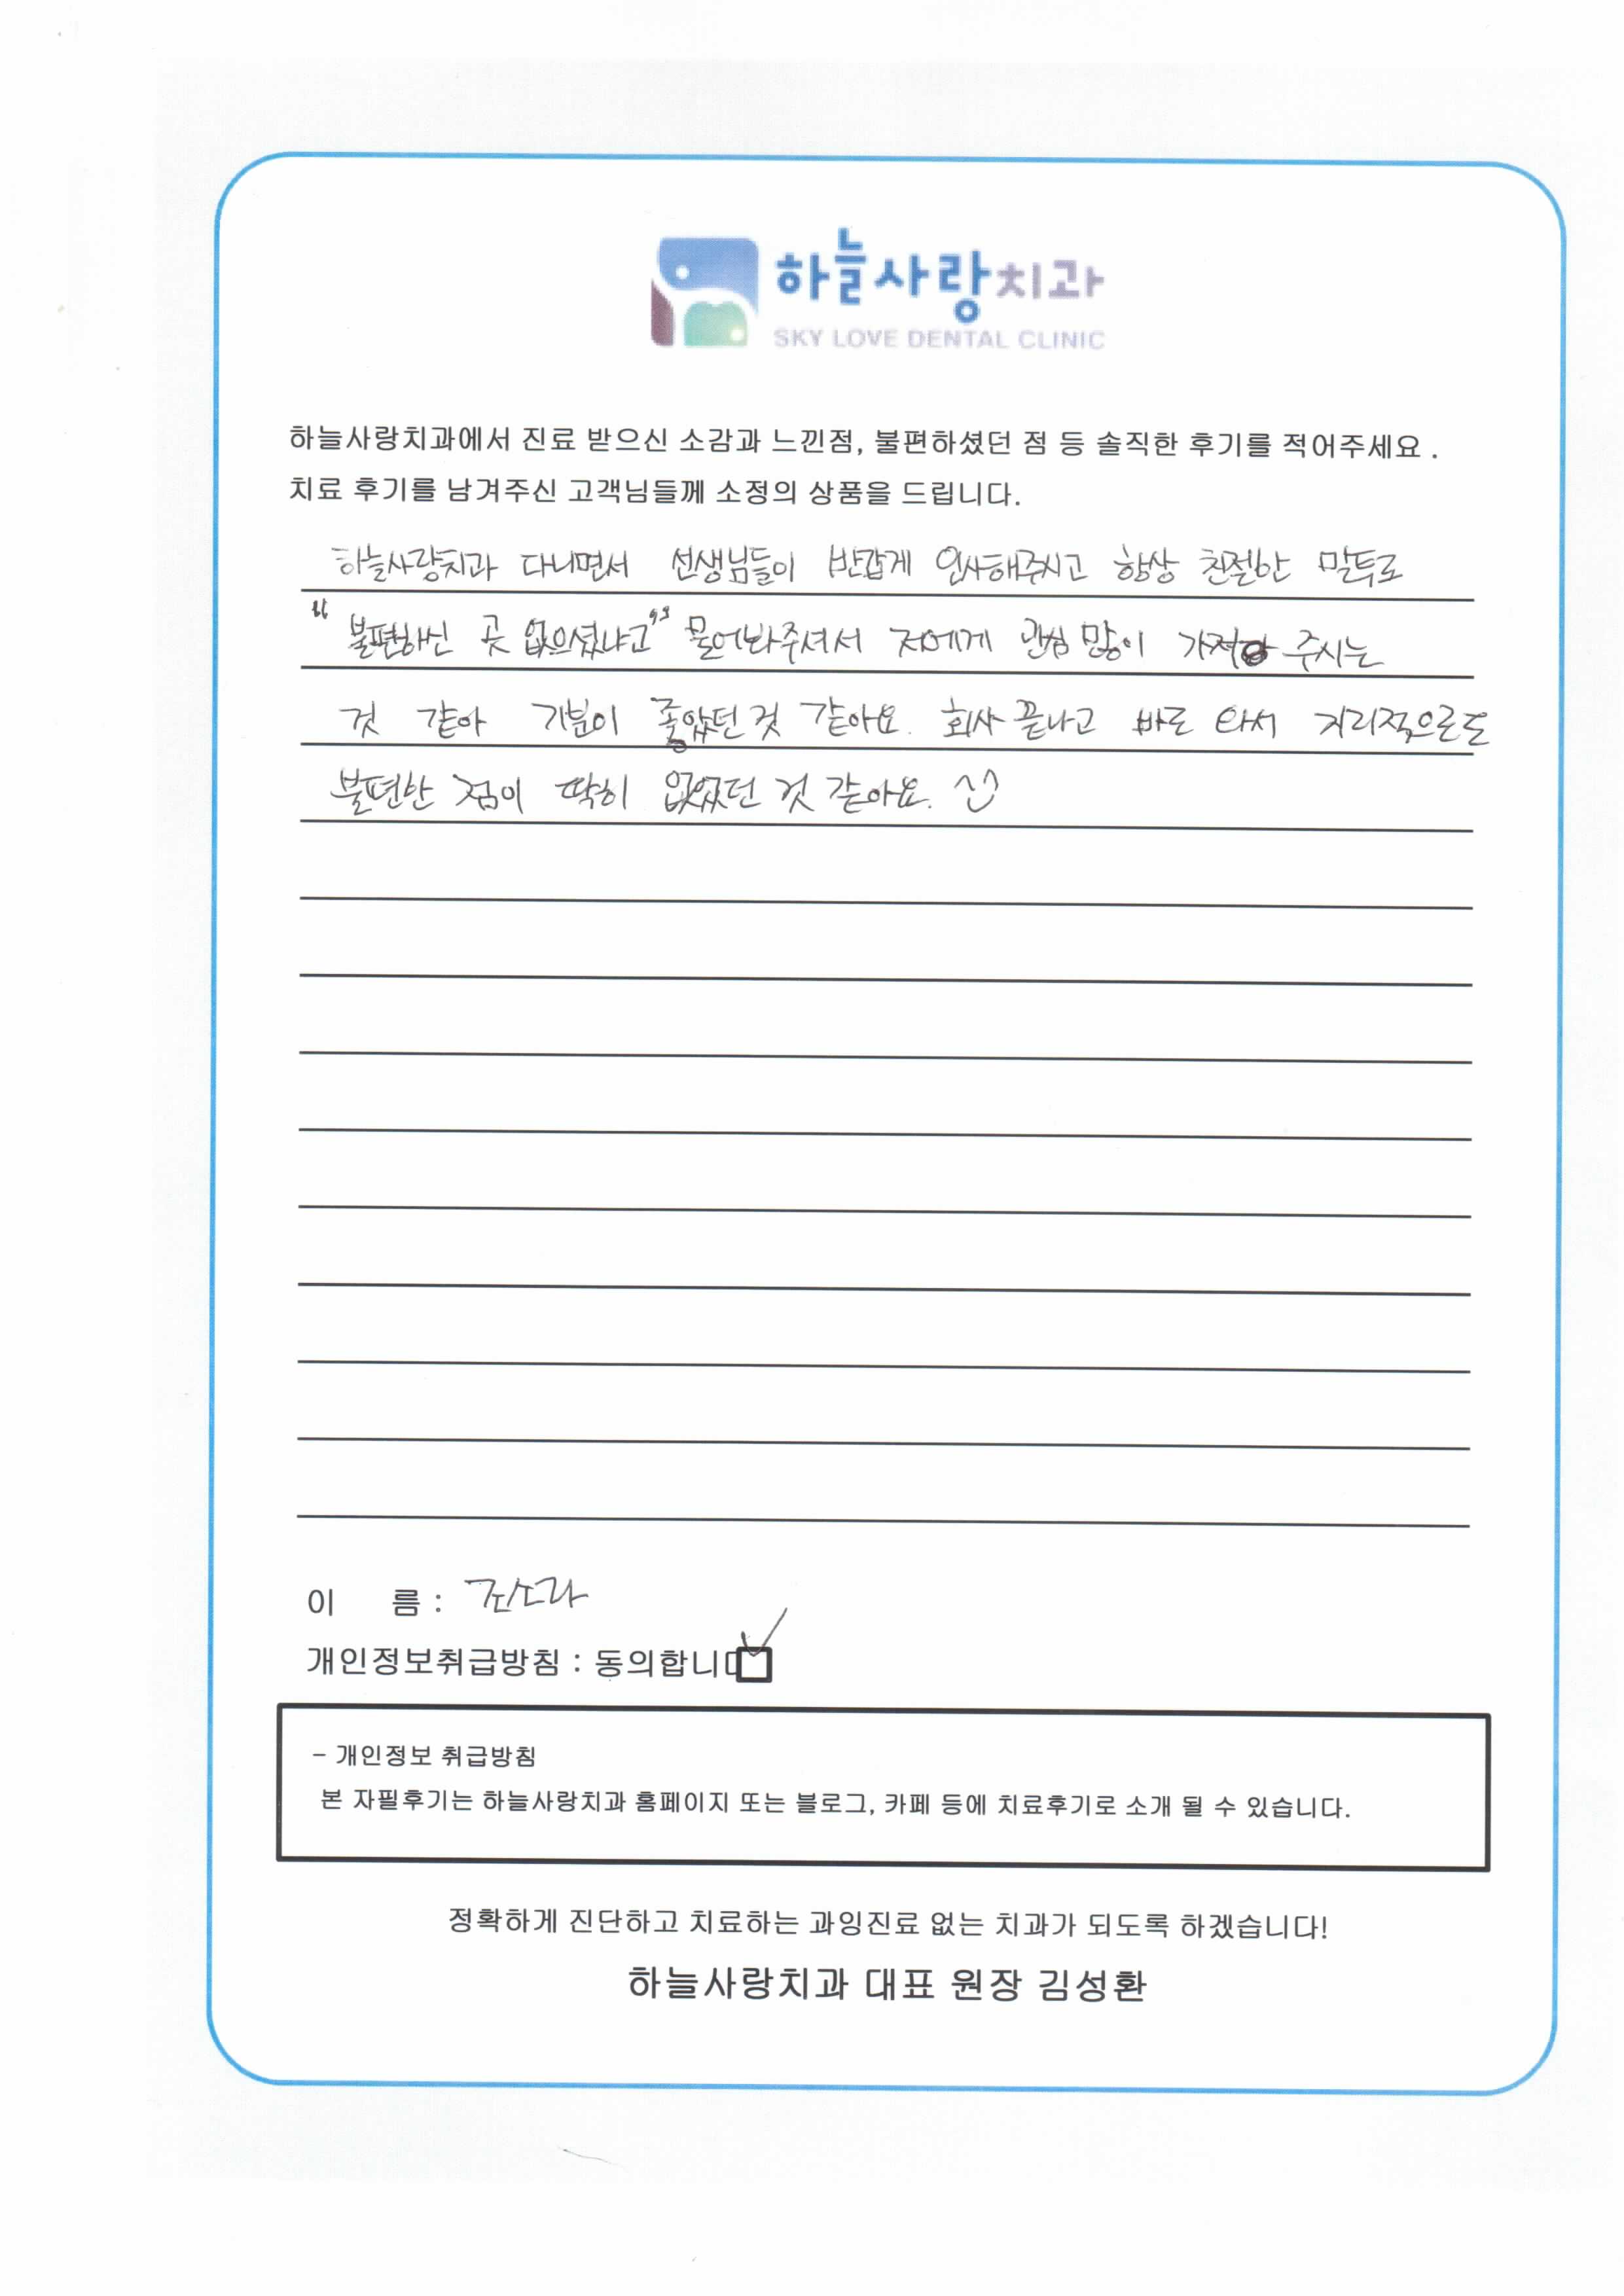 하늘사랑치과
SKY LOVE DENTAL CLINIC
하늘사랑치과에서 진료 받으신 소감과 느낀점, 불편하셨던 점 등 솔직한 후기를 적어주세요 .
치료 후기를 남겨주신 고객님들께 소정의 상품을 드립니다.
하늘사랑치과 다니면서 선생님들이 반갑게 인사해주시고 항상 친절한 말투로
"불편하신 곳 없으셨냐고" 물어봐주셔서 저에게 관심 많이 가져 주시는
것 같아 기분이 좋았던 것 같아요. 회사 끝나고 바로 와서 거리적으로도
불편한 점이 딱히 없었던 것 같아요. ^^
이 름 :
개인정보취급방침 : 동의합니
- 개인정보 취급방침
본 자필후기는 하늘사랑치과 홈페이지 또는 블로그, 카페 등에 치료후기로 소개 될 수 있습니다.
정확하게 진단하고 치료하는 과잉진료 없는 치과가 되도록 하겠습니다!
하늘사랑치과 대표 원장 김성환